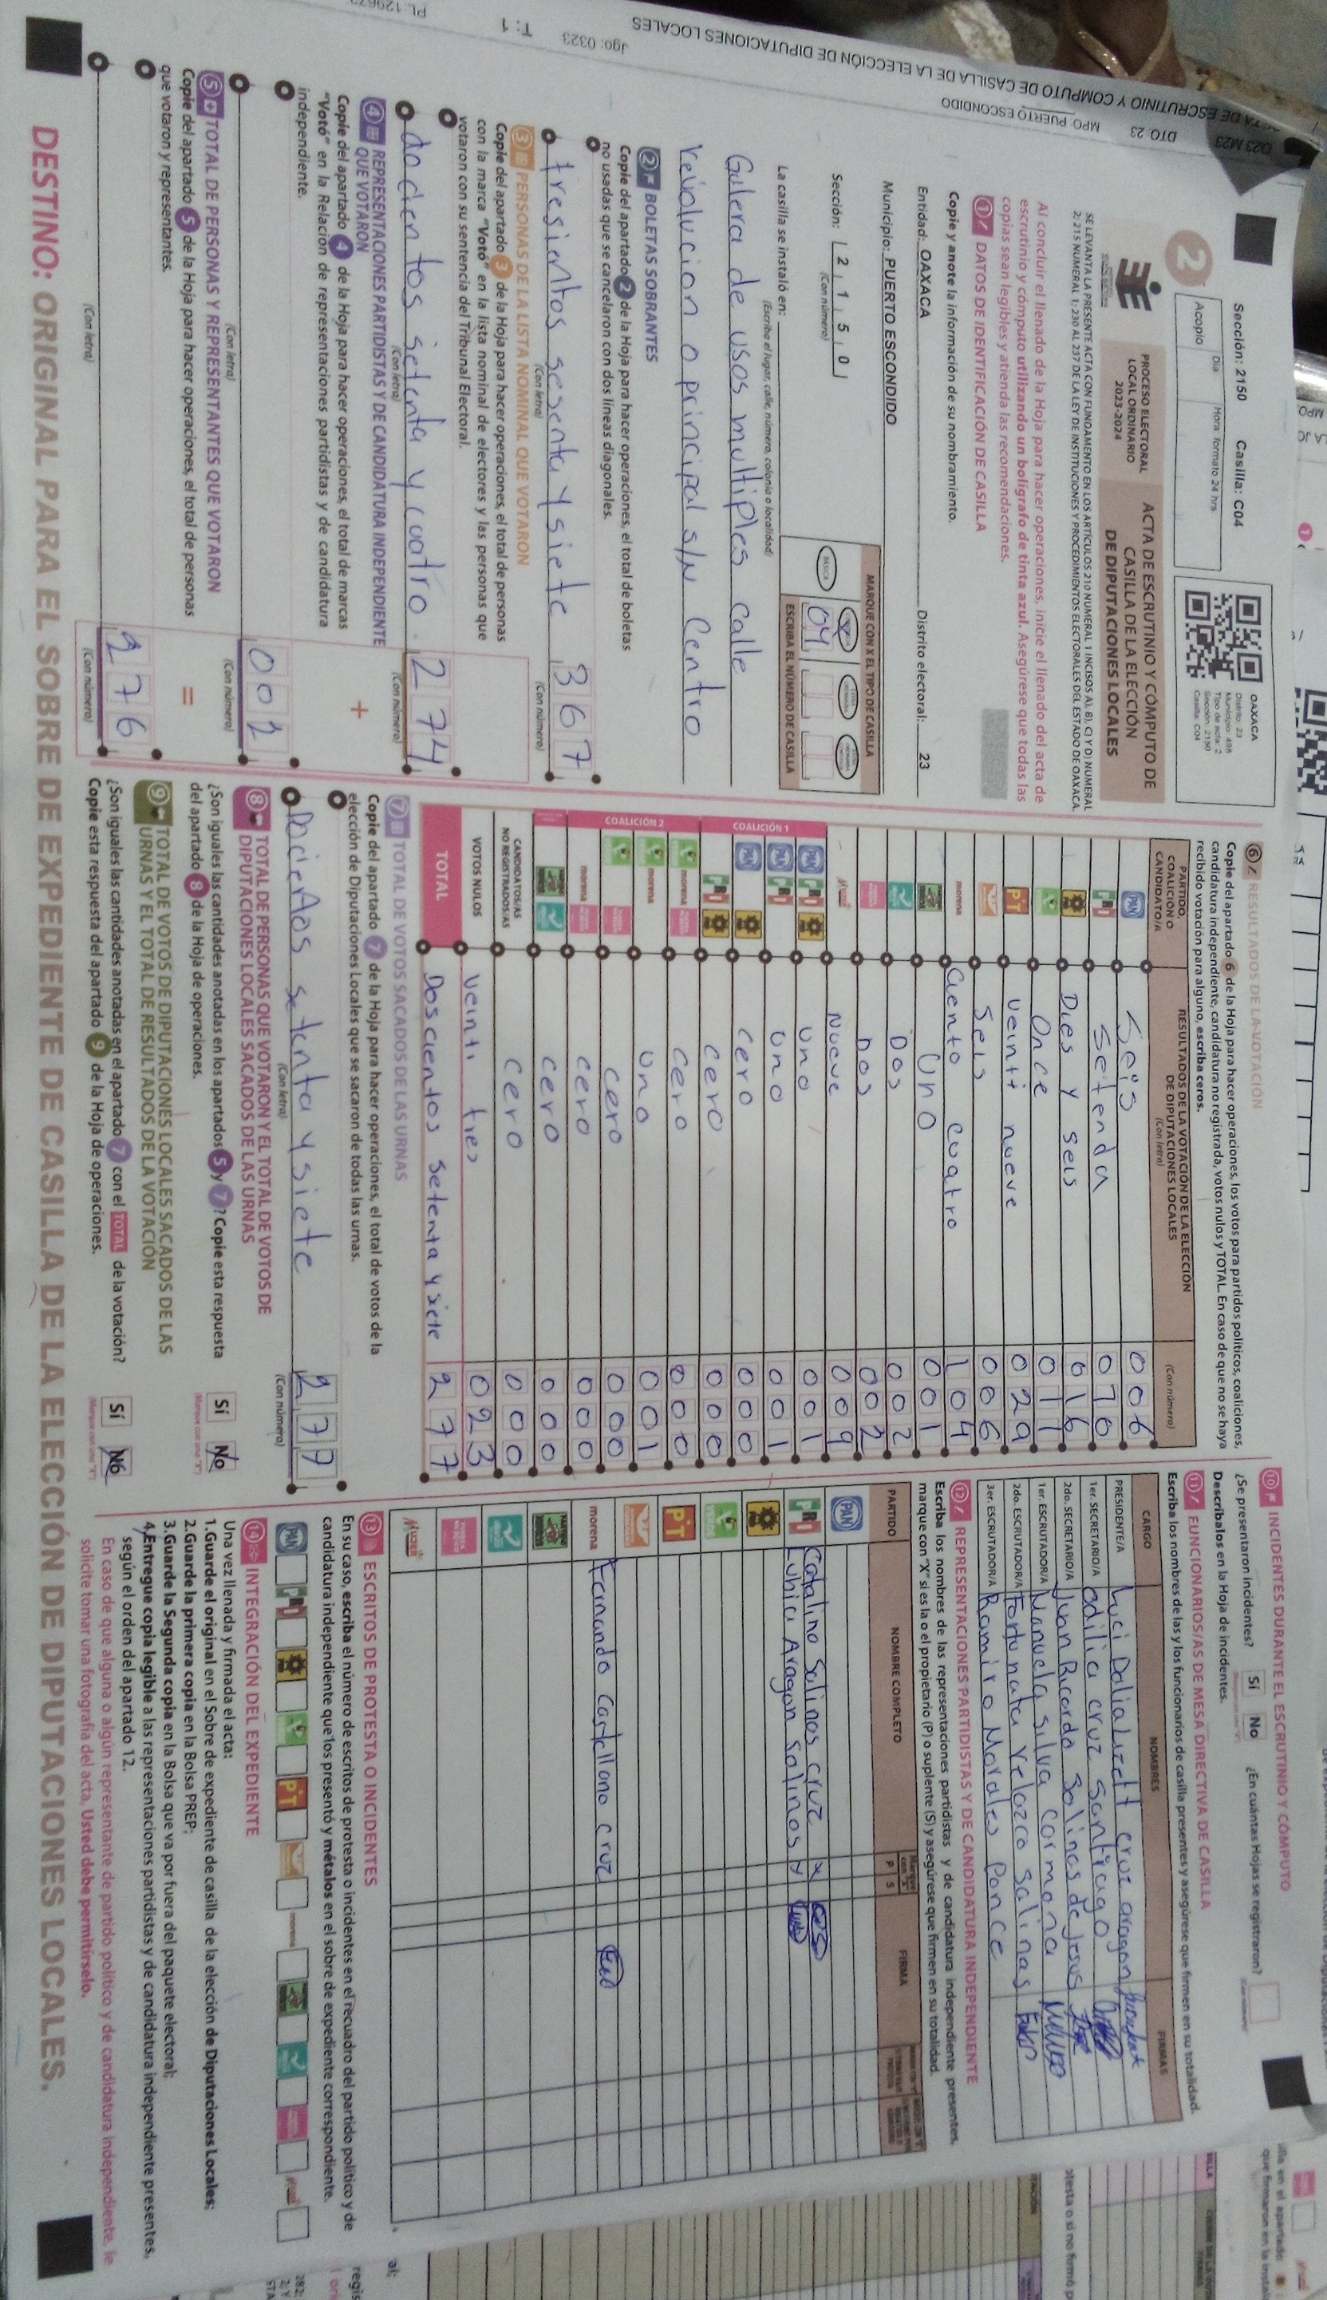 Sección: 2150 Casilla: C04
2
Acopio
Día
Hora formato 24 hrs
OAXACA
Distrito: 23
Tipo de acta: 2
Sección: 2150
Casilla: C04
PROCESO ELECTORAL
LOCAL ORDINARIO
2023-2024
ACTA DE ESCRUTINIO Y CÓMPUTO DE
CASILLA DE LA ELECCIÓN
DE DIPUTACIONES LOCALES
SE LEVANTA LA PRESENTE ACTA CON FUNDAMENTO EN LOS ARTÍCULOS 210 NUMERAL 1 INCISOS A), B), C) Y D) NUMERAL
2; 215 NUMERAL 1; 230 AL 237 DE LA LEY DE INSTITUCIONES Y PROCEDIMIENTOS ELECTORALES DEL ESTADO DE OAXACA.
Al concluir el llenado de la Hoja para hacer operaciones, inicie el llenado del acta de
escrutinio y cómputo utilizando un bolígrafo de tinta azul. Asegúrese que todas las
copias sean legibles y atienda las recomendaciones.
1 DATOS DE IDENTIFICACIÓN DE CASILLA
Copie y anote la información de su nombramiento.
Entidad: OAXACA Distrito electoral: 23
Municipio: PUERTO ESCONDIDO
Sección: 2 1 5 0
(Con número)
MARQUE CON X EL TIPO DE CASILLA
BÁSICA
04
ESCRIBA EL NÚMERO DE CASILLA
La casilla se instaló en:
(Escriba el lugar, calle, número, colonia o localidad)
Galera de usos multiples calle
revolucion o principal s/n Centro
2 BOLETAS SOBRANTES
Copie del apartado 2 de la Hoja para hacer operaciones, el total de boletas
no usadas que se cancelaron con dos líneas diagonales.
tresientos sesenta y siete 367
(Con letra) (Con número)
3 PERSONAS DE LA LISTA NOMINAL QUE VOTARON
Copie del apartado 3 de la Hoja para hacer operaciones, el total de personas
con la marca "Votó" en la lista nominal de electores y las personas que
votaron con su sentencia del Tribunal Electoral.
docientos setenta y cuatro. 274
(Con letra) (Con número)
4 REPRESENTACIONES PARTIDISTAS Y DE CANDIDATURA INDEPENDIENTE
QUE VOTARON
Copie del apartado 4 de la Hoja para hacer operaciones, el total de marcas
"Votó" en la Relación de representaciones partidistas y de candidatura
independiente.
+
002
(Con letra) (Con número)
5 TOTAL DE PERSONAS Y REPRESENTANTES QUE VOTARON
Copie del apartado 5 de la Hoja para hacer operaciones, el total de personas
que votaron y representantes.
=
276
(Con letra) (Con número)
6 RESULTADOS DE LA VOTACIÓN
Copie del apartado 6 de la Hoja para hacer operaciones, los votos para partidos políticos, coaliciones,
candidatura independiente, candidatura no registrada, votos nulos y TOTAL. En caso de que no se haya
recibido votación para alguno, escriba ceros.
PARTIDO,
COALICIÓN O
CANDIDATO/A
RESULTADOS DE LA VOTACIÓN DE LA ELECCIÓN
DE DIPUTACIONES LOCALES
(Con letra)
(Con número)
PAN Seis 006
PRI Setenda 070
PRD Dies y seis 016
Once 011
PT veinti nueve 029
Seis 006
morena ciento cuatro 104
Uno 001
Dos 002
Dos 002
Nueve 009
COALICIÓN 1
PAN PRI PRD uno 001
PAN PRI uno 001
PAN PRD cero 000
PRI PRD cero 000
COALICIÓN 2
morena cero 000
morena uno 001
cero 000
morena cero 000
cero 000
CANDIDATOS/AS
NO REGISTRADOS/AS cero 000
VOTOS NULOS veinti tres 023
TOTAL Doscientos setenta y siete 277
7 TOTAL DE VOTOS SACADOS DE LAS URNAS
Copie del apartado 7 de la Hoja para hacer operaciones, el total de votos de la
elección de Diputaciones Locales que se sacaron de todas las urnas.
Docientos setenta y siete 277
(Con letra) (Con número)
8 TOTAL DE PERSONAS QUE VOTARON Y EL TOTAL DE VOTOS DE
DIPUTACIONES LOCALES SACADOS DE LAS URNAS
¿Son iguales las cantidades anotadas en los apartados 5 y 7? Copie esta respuesta
del apartado 8 de la Hoja de operaciones.
Sí No
9 TOTAL DE VOTOS DE DIPUTACIONES LOCALES SACADOS DE LAS
URNAS Y EL TOTAL DE RESULTADOS DE LA VOTACIÓN
¿Son iguales las cantidades anotadas en el apartado 7 con el TOTAL de la votación?
Copie esta respuesta del apartado 9 de la Hoja de operaciones.
Sí No
10 INCIDENTES DURANTE EL ESCRUTINIO Y CÓMPUTO
¿Se presentaron incidentes? Sí No ¿En cuántas Hojas se registraron?
Descríbalos en la Hoja de incidentes.
11 FUNCIONARIOS/AS DE MESA DIRECTIVA DE CASILLA
Escriba los nombres de las y los funcionarios de casilla presentes y asegúrese que firmen en su totalidad.
CARGO NOMBRES FIRMAS
PRESIDENTE/A Luci Dalia Lizett cruz aragon
1er. SECRETARIO/A odilia cruz santiago
2do. SECRETARIO/A Juan Ricardo Salinas de Jesus
1er. ESCRUTADOR/A Manuela silva carmona
2do. ESCRUTADOR/A Fortunata Velazco Salinas
3er. ESCRUTADOR/A Ramiro Morales Ponce
12 REPRESENTACIONES PARTIDISTAS Y DE CANDIDATURA INDEPENDIENTE
Escriba los nombres de las representaciones partidistas y de candidatura independiente presentes,
marque con "X" si es la o el propietario (P) o suplente (S) y asegúrese que firmen en su totalidad.
PARTIDO NOMBRE COMPLETO P S FIRMA
PAN Catalino Salinas cruz x
PRI Lubia Aragon Salinas x
PRD
PT
morena Fernando Castellano cruz
13 ESCRITOS DE PROTESTA O INCIDENTES
En su caso, escriba el número de escritos de protesta o incidentes en el recuadro del partido político y de
candidatura independiente que los presentó y métalos en el sobre de expediente correspondiente.
PAN PRI PRD PT morena
14 INTEGRACIÓN DEL EXPEDIENTE
Una vez llenada y firmada el acta:
1.Guarde el original en el Sobre de expediente de casilla de la elección de Diputaciones Locales;
2.Guarde la primera copia en la Bolsa PREP;
3.Guarde la Segunda copia en la Bolsa que va por fuera del paquete electoral;
4.Entregue copia legible a las representaciones partidistas y de candidatura independiente presentes,
según el orden del apartado 12.
En caso de que alguna o algún representante de partido político y de candidatura independiente, le
solicite tomar una fotografía del acta, Usted debe permitírselo.
DESTINO: ORIGINAL PARA EL SOBRE DE EXPEDIENTE DE CASILLA DE LA ELECCIÓN DE DIPUTACIONES LOCALES.
ACTA DE ESCRUTINIO Y CÓMPUTO DE CASILLA DE LA ELECCIÓN DE DIPUTACIONES LOCALES
DTO 23 MPO PUERTO ESCONDIDO
Jgo: 0323
T: 1